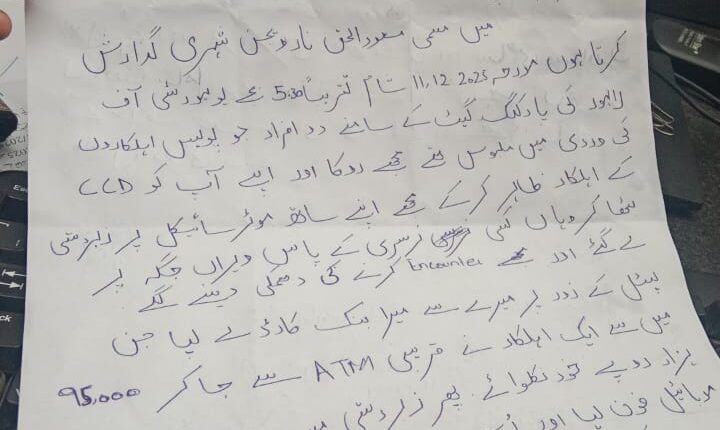 میں مسمی مسعود الحق نارویجن شہری گذارش
کرتا ہوں مورخہ 11,12 2025 شام تقریباً 5:30 بجے یونیورسٹی آف
لاہور کی پارکنگ گیٹ کے سامنے دو افراد جو پولیس اہلکاروں
کی وردی میں ملبوس تھے مجھے روکا اور اپنے آپ کو CCD
کے اہلکار ظاہر کر کے مجھے اپنے ساتھ موٹر سائیکل پر زبردستی
بٹھا کر وہاں کسی نرسری کے پاس ویران جگہ پر
لے گئے اور مجھے Encounter کرنے کی دھمکی دینے لگے
پسٹل کے زور پر میرے سے میرا بنک کارڈ لے لیا جن
میں سے ایک اہلکار نے قریبی ATM سے جا کر 95,000
ہزار روپے خود نکلوائے۔ پھر زبردستی
موبائیل فون لیا اور